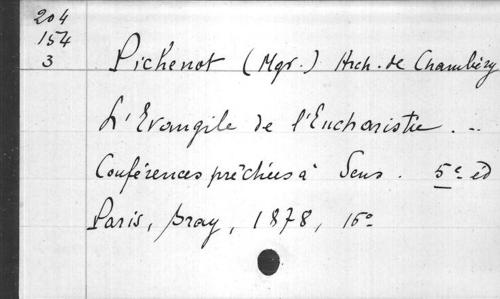 204
154
3
Pichenot (Mgr.) Arch. de Chambéry
L'Evangile de l'Eucharistie. ..
Conférences prêchées à Sens. 5e éd
Paris, Bray, 1878, 16o